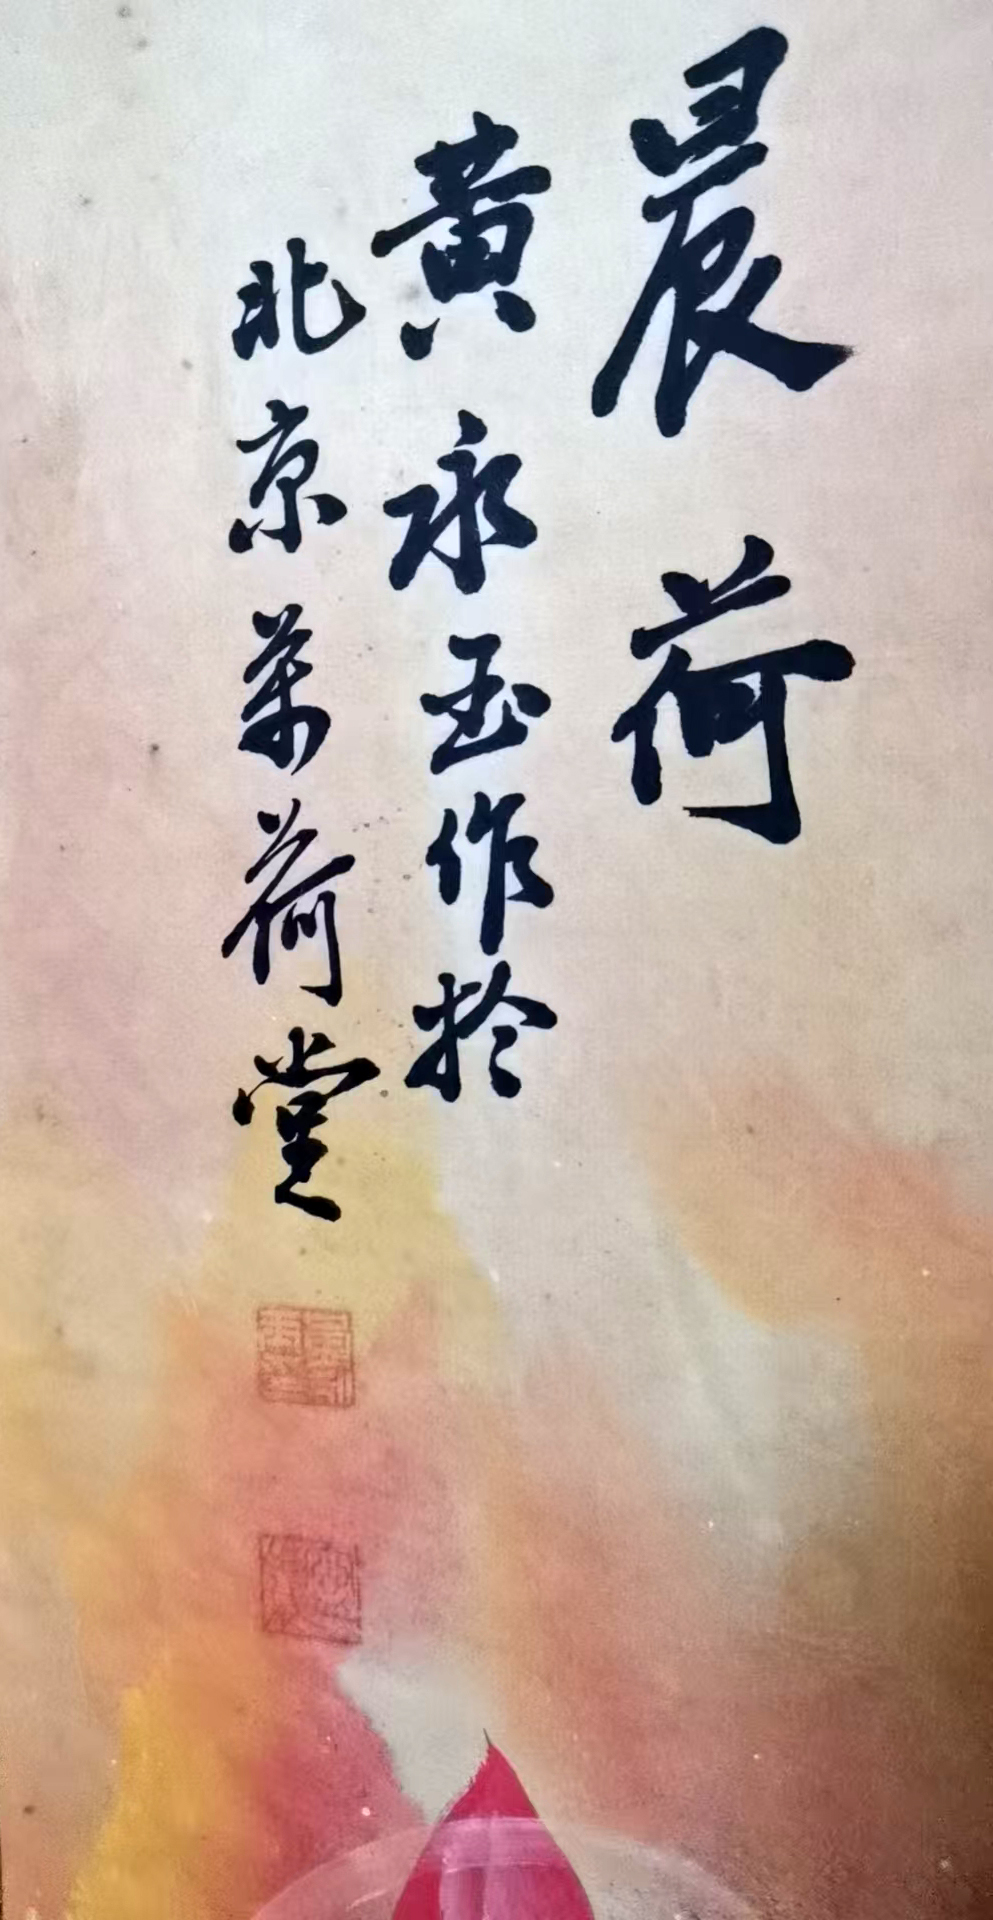 晨荷
黄永玉作於
北京萬荷堂